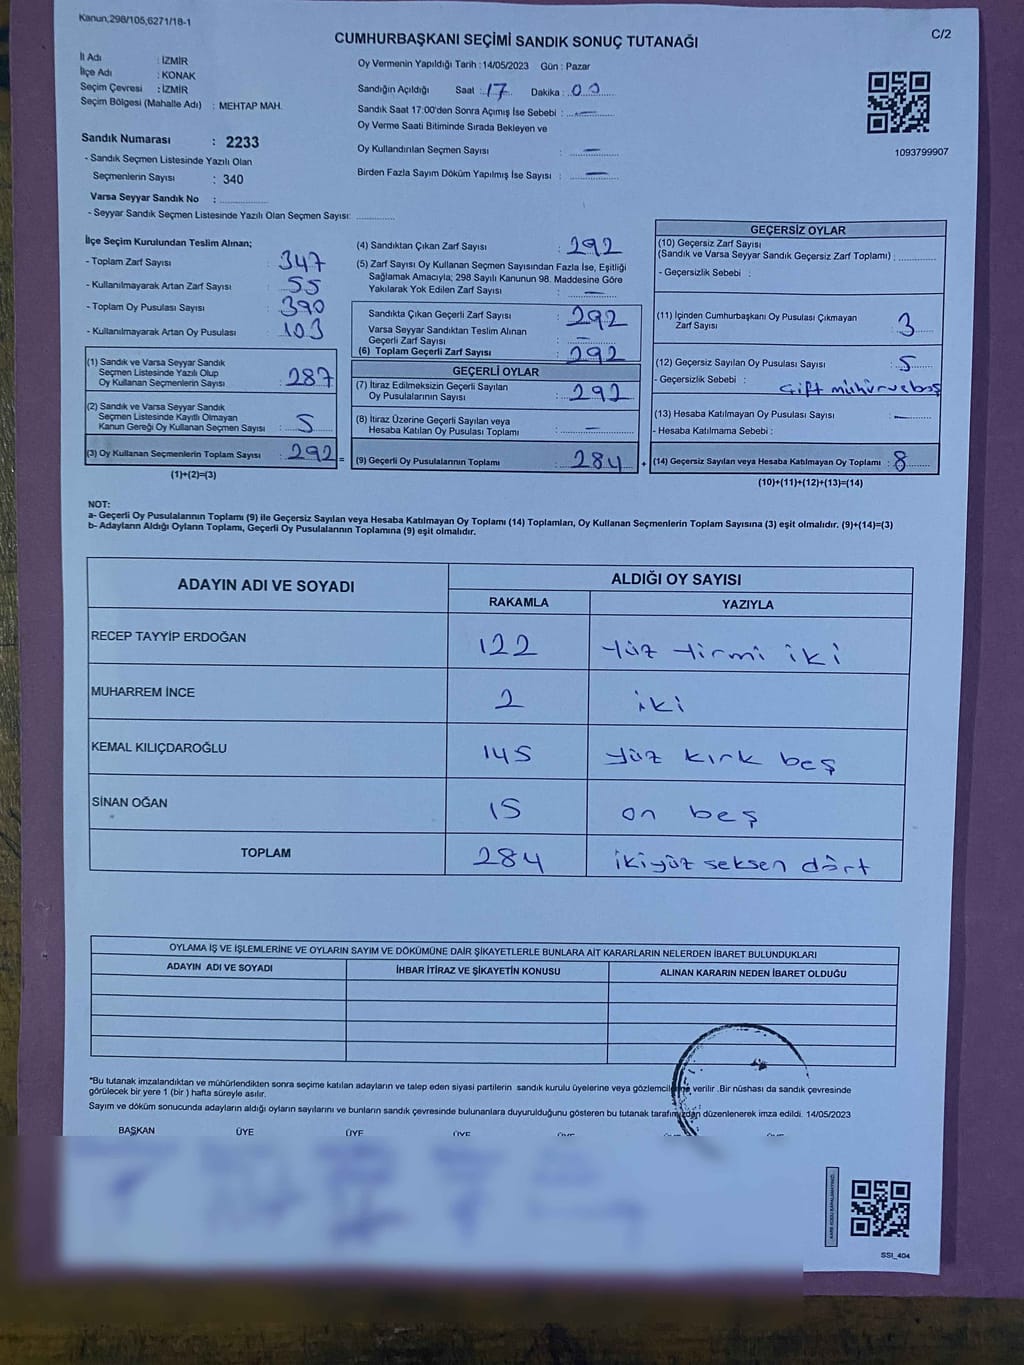 Kanun,298/105,6271/18-1
C/2
CUMHURBAŞKANI SEÇİMİ SANDIK SONUÇ TUTANAĞI
İl Adı : İZMİR
İlçe Adı : KONAK
Seçim Çevresi : İZMİR
Seçim Bölgesi (Mahalle Adı) : MEHTAP MAH.
Sandık Numarası : 2233
- Sandık Seçmen Listesinde Yazılı Olan
Seçmenlerin Sayısı : 340
Varsa Seyyar Sandık No :
- Seyyar Sandık Seçmen Listesinde Yazılı Olan Seçmen Sayısı:
Oy Vermenin Yapıldığı Tarih : 14/05/2023 Gün : Pazar
Sandığın Açıldığı Saat : 17 Dakika : 00
Sandık Saat 17:00'den Sonra Açımış İse Sebebi : —
Oy Verme Saati Bitiminde Sırada Bekleyen ve
Oy Kullandırılan Seçmen Sayısı : —
Birden Fazla Sayım Döküm Yapılmış İse Sayısı : —
1093799907
İlçe Seçim Kurulundan Teslim Alınan;
- Toplam Zarf Sayısı : 347
- Kullanılmayarak Artan Zarf Sayısı : 55
- Toplam Oy Pusulası Sayısı : 390
- Kullanılmayarak Artan Oy Pusulası : 103
(1) Sandık ve Varsa Seyyar Sandık
Seçmen Listesinde Yazılı Olup
Oy Kullanan Seçmenlerin Sayısı : 287
(2) Sandık ve Varsa Seyyar Sandık
Seçmen Listesinde Kayıtlı Olmayan
Kanun Gereği Oy Kullanan Seçmen Sayısı : 5
(3) Oy Kullanan Seçmenlerin Toplam Sayısı : 292 =
(1)+(2)=(3)
(4) Sandıktan Çıkan Zarf Sayısı : 292
(5) Zarf Sayısı Oy Kullanan Seçmen Sayısından Fazla İse, Eşitliği
Sağlamak Amacıyla; 298 Sayılı Kanunun 98. Maddesine Göre
Yakılarak Yok Edilen Zarf Sayısı : —
Sandıkta Çıkan Geçerli Zarf Sayısı : 292
Varsa Seyyar Sandıktan Teslim Alınan
Geçerli Zarf Sayısı : —
(6) Toplam Geçerli Zarf Sayısı : 292
GEÇERLİ OYLAR
(7) İtiraz Edilmeksizin Geçerli Sayılan
Oy Pusulalarının Sayısı : 292
(8) İtiraz Üzerine Geçerli Sayılan veya
Hesaba Katılan Oy Pusulası Toplamı : —
(9) Geçerli Oy Pusulalarının Toplamı : 284 +
GEÇERSİZ OYLAR
(10) Geçersiz Zarf Sayısı
(Sandık ve Varsa Seyyar Sandık Geçersiz Zarf Toplamı) :
- Geçersizlik Sebebi :
(11) İçinden Cumhurbaşkanı Oy Pusulası Çıkmayan
Zarf Sayısı : 3
(12) Geçersiz Sayılan Oy Pusulası Sayısı : 5
- Geçersizlik Sebebi : Çift mühür ve boş
(13) Hesaba Katılmayan Oy Pusulası Sayısı : —
- Hesaba Katılmama Sebebi :
(14) Geçersiz Sayılan veya Hesaba Katılmayan Oy Toplamı : 8
(10)+(11)+(12)+(13)=(14)
NOT:
a- Geçerli Oy Pusulalarının Toplamı (9) ile Geçersiz Sayılan veya Hesaba Katılmayan Oy Toplamı (14) Toplamları, Oy Kullanan Seçmenlerin Toplam Sayısına (3) eşit olmalıdır. (9)+(14)=(3)
b- Adayların Aldığı Oyların Toplamı, Geçerli Oy Pusulalarının Toplamına (9) eşit olmalıdır.
ADAYIN ADI VE SOYADI
ALDIĞI OY SAYISI
RAKAMLA YAZIYLA
RECEP TAYYİP ERDOĞAN 122 Yüz Yirmi iki
MUHARREM İNCE 2 iki
KEMAL KILIÇDAROĞLU 145 yüz kırk beş
SİNAN OĞAN 15 on beş
TOPLAM 284 ikiyüz seksen dört
OYLAMA İŞ VE İŞLEMLERİNE VE OYLARIN SAYIM VE DÖKÜMÜNE DAİR ŞİKAYETLERLE BUNLARA AİT KARARLARIN NELERDEN İBARET BULUNDUKLARI
ADAYIN ADI VE SOYADI İHBAR İTİRAZ VE ŞİKAYETİN KONUSU ALINAN KARARIN NEDEN İBARET OLDUĞU
"Bu tutanak imzalandıktan ve mühürlendikten sonra seçime katılan adayların ve talep eden siyasi partilerin sandık kurulu üyelerine veya gözlemcilerine verilir .Bir nüshası da sandık çevresinde
görülecek bir yere 1 (bir ) hafta süreyle asılır.
Sayım ve döküm sonucunda adayların aldığı oyların sayılarını ve bunların sandık çevresinde bulunanlara duyurulduğunu gösteren bu tutanak tarafımızdan düzenlenerek imza edildi. 14/05/2023
BAŞKAN ÜYE ÜYE ÜYE
SSI_404